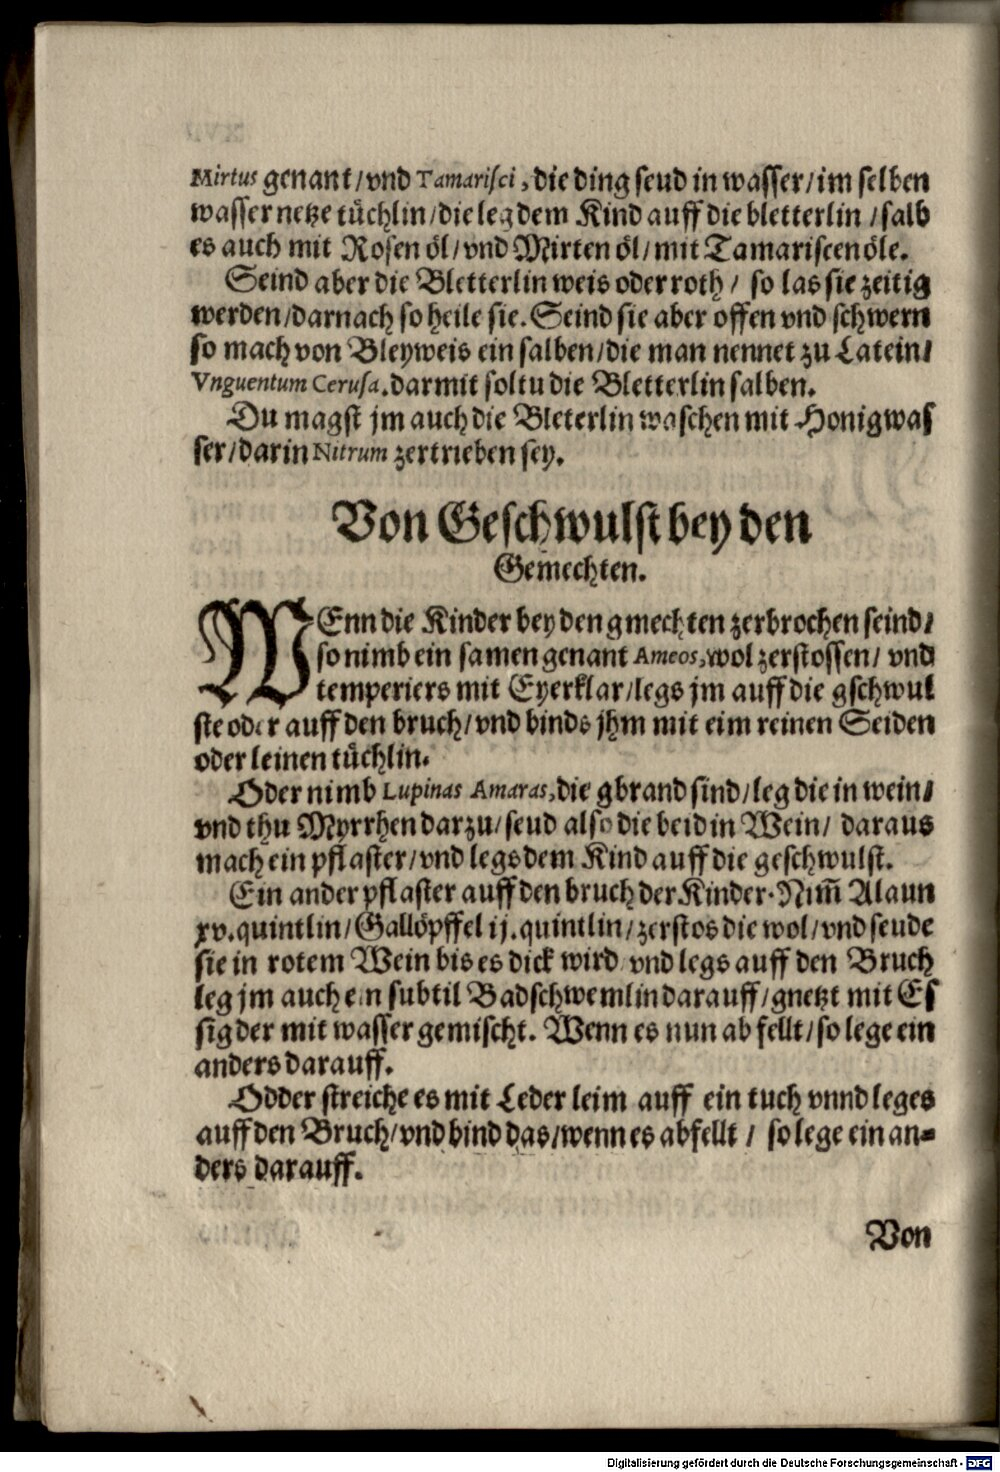 Mirtus genant/vnd Tamarisci, die ding seud in wasser/im selben
wasser netze tüchlin/die leg dem Kind auff die bletterlin/salb
es auch mit Rosen öl/vnd Mirten öl/mit Tamariscen öle.
Seind aber die Bletterlin weis oder roth/ so las sie zeitig
werden/darnach so heile sie. Seind sie aber offen vnd schwern
so mach von Bleyweis ein salben/die man nennet zu Latein/
Vnguentum Cerusa. darmit soltu die Bletterlin salben.
Du magst jm auch die Bleterlin waschen mit Honigwas
ser/darin Nitrum zertrieben sey.
Von Geschwulst bey den
Gemechten.
WEnn die Kinder bey den gmechten zerbrochen seind/
so nimb ein samen genant Ameos, wol zerstossen/ vnd
temperiers mit Eyerklar/legs jm auff die gschwul
ste oder auff den bruch/vnd binds jhm mit eim reinen Seiden
oder leinen tüchlin.
Oder nimb Lupinas Amaras, die gbrand sind/leg die in wein/
vnd thu Myrrhen darzu/seud also die beid in Wein/ daraus
mach ein pflaster/vnd legs dem Kind auff die geschwulst.
Ein ander pflaster auff den bruch der Kinder. Nim̃ Alaun
xv. quintlin/Gallöpffel ij. quintlin/zerstos die wol/vnd seude
sie in rotem Wein bis es dick wird vnd legs auff den Bruch
leg jm auch ein subtil Badschwemlin darauff/gnetzt mit Es
sig der mit wasser gemischt. Wenn es nun ab fellt/so lege ein
anders darauff.
Odder streiche es mit Leder leim auff ein tuch vnnd leges
auff den Bruch/vnd bind das/wenn es abfellt/ so lege ein an=
ders darauff.
Von
Digitalisierung gefördert durch die Deutsche Forschungsgemeinschaft - DFG